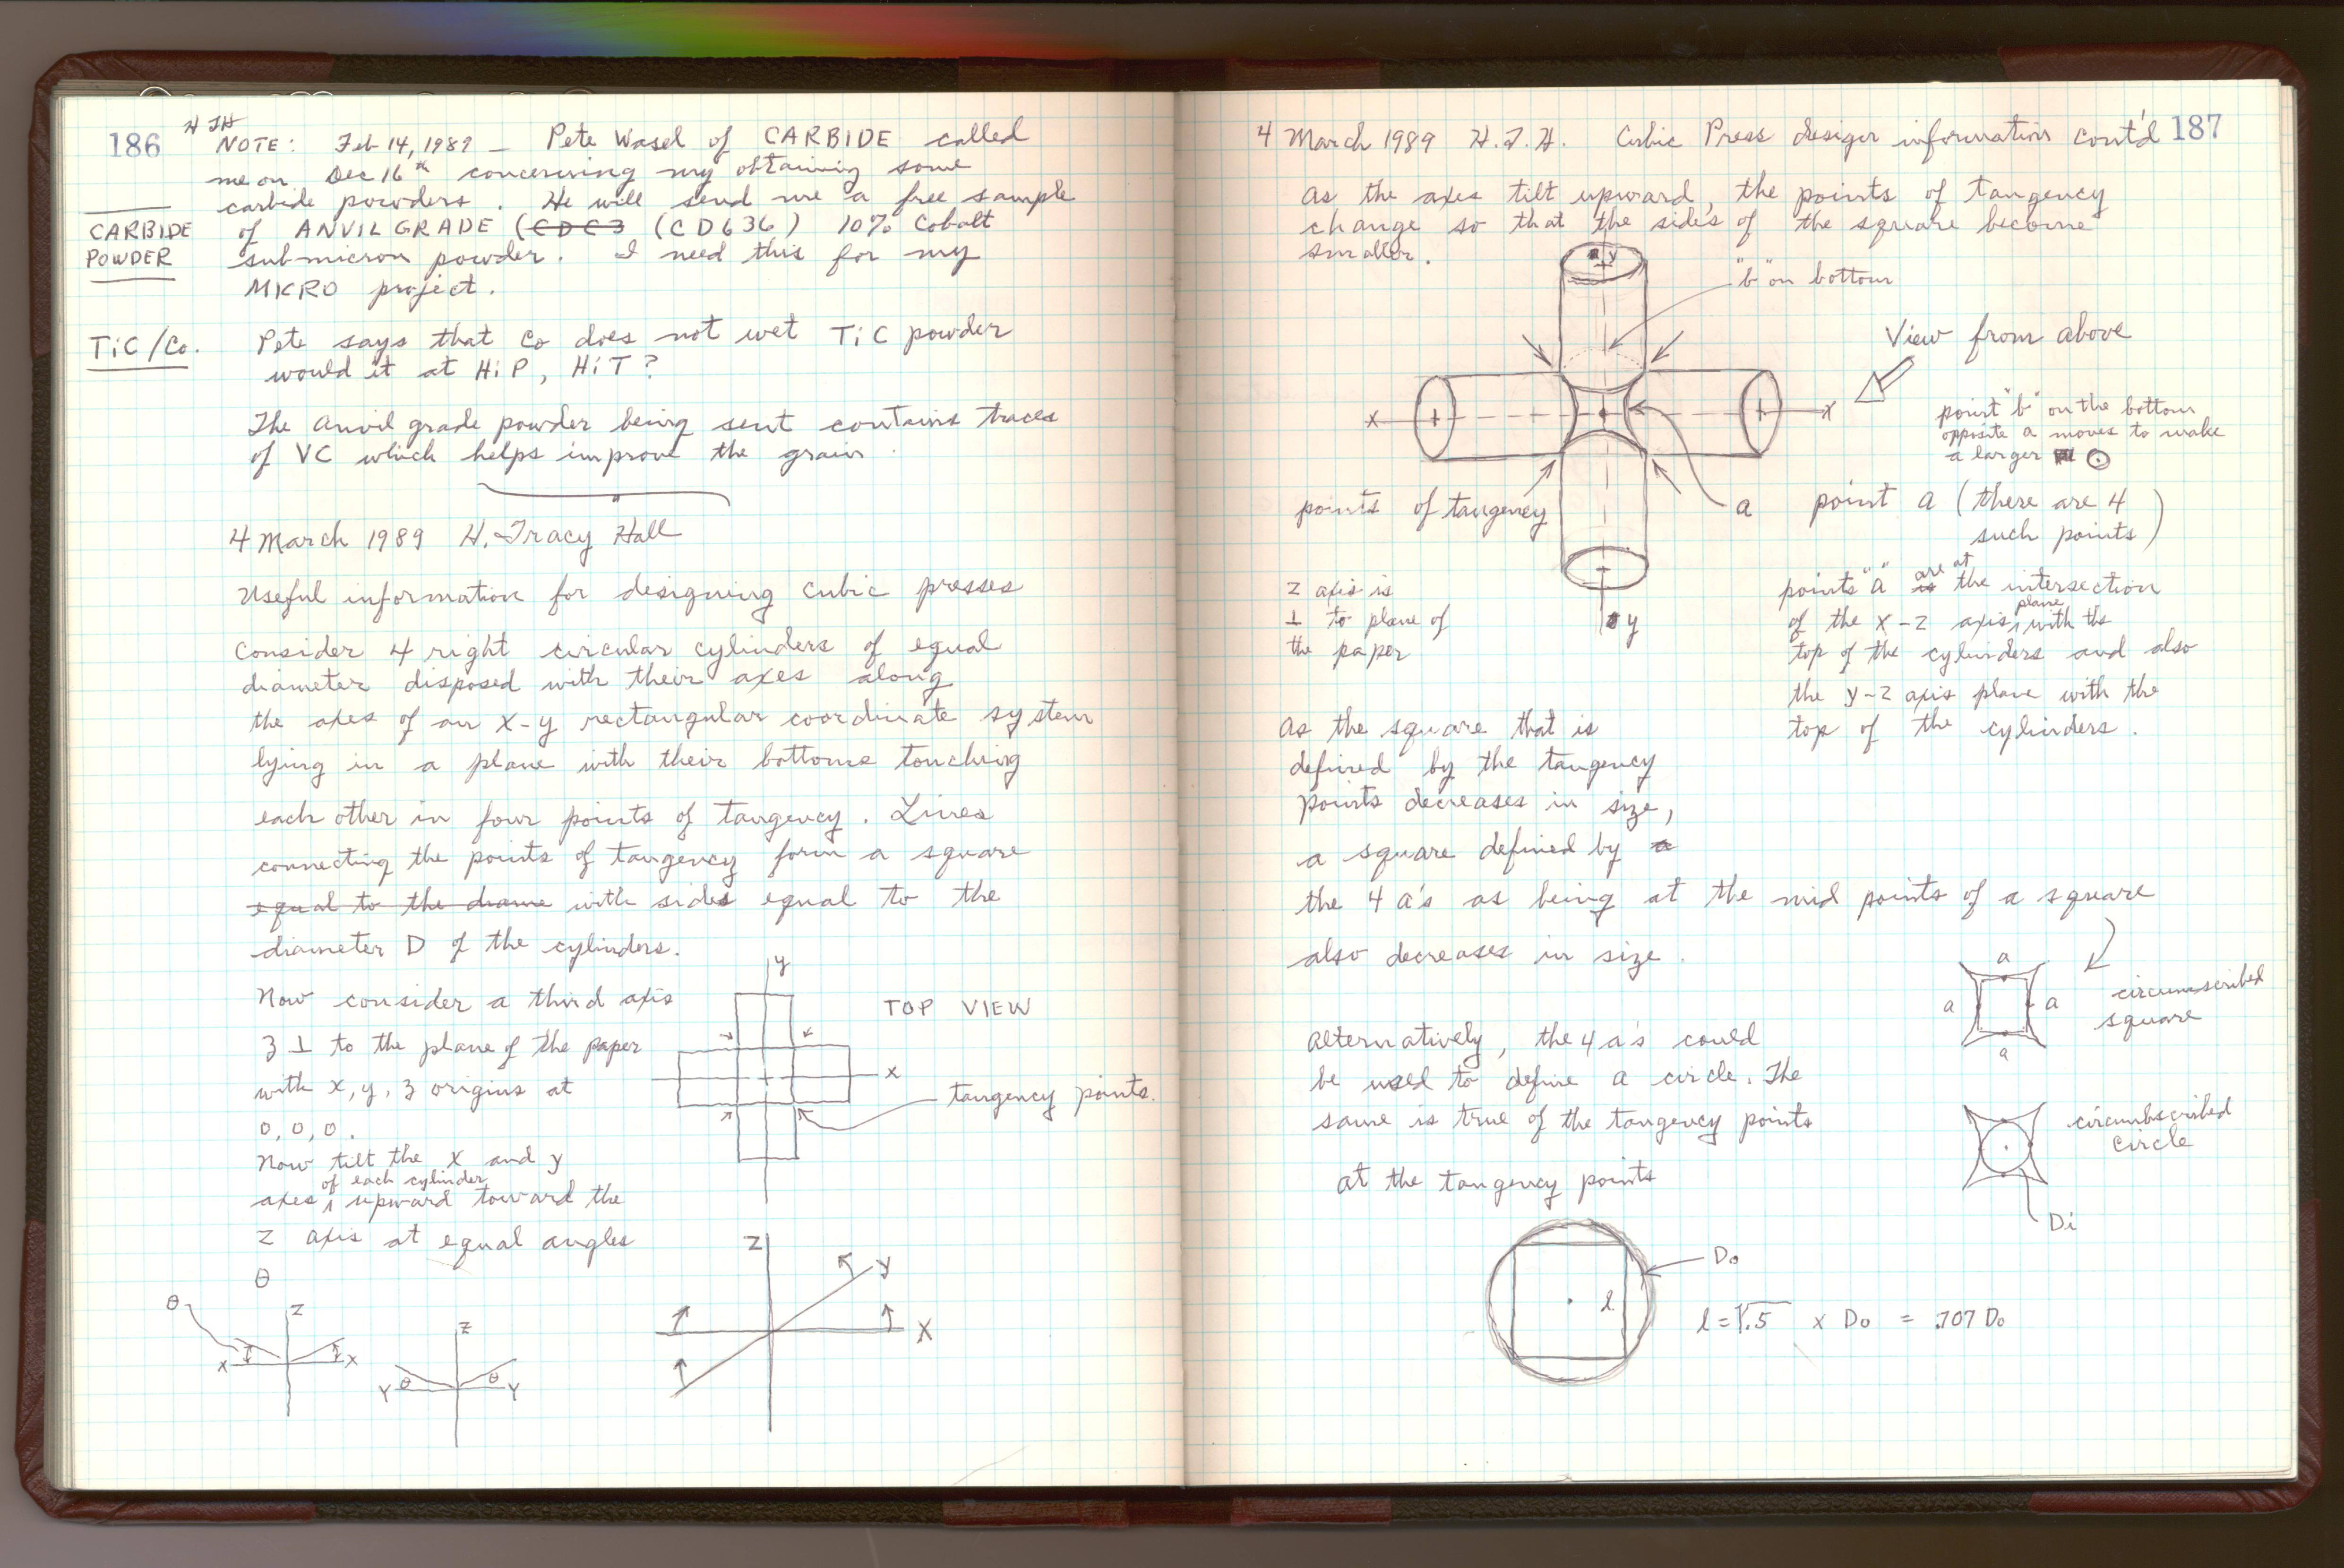 186
HTH
NOTE: Feb 14, 1989 – Pete Wasel of CARBIDE called
me on Dec 16th concerning my obtaining some
carbide powders. He will send me a free sample
of ANVIL GRADE (CDC3 (CD636) 10% Cobalt
submicron powder. I need this for my
MKRO project.
CARBIDE
POWDER
TiC/Co.
Pete says that Co does not wet TiC powder
would it at HiP, HiT?
The anvil grade powder being sent contains traces
of VC which helps improve the grain
4 March 1989 H. Tracy Hall
Useful information for designing cubic presses
Consider 4 right circular cylinders of equal
diameter disposed with their axes along
the axes of an x-y rectangular coordinate system
lying in a plane with their bottoms touching
each other in four points of tangency. Lines
connecting the points of tangency form a square
equal to the diame with sides equal to the
diameter D of the cylinders.
Now consider a third axis
z ⊥ to the plane of the paper
with x, y, z origins at
0, 0, 0.
Now tilt the x and y
of each cylinder
axes upward toward the
z axis at equal angles
θ
y
TOP VIEW
x
tangency points.
θ
z
x
x
z
Y
θ
θ
Y
Z
y
X
187
4 March 1989 H.T.H. Cubic Press design information cont'd
As the axes tilt upward, the points of tangency
change so that the sides of the square become
smaller.
y
"b" on bottom
View from above
x
x
point "b" on the bottom
opposite a moves to make
a larger
points of tangency
a
point a (there are 4
such points)
z axis is
⊥ to plane of
the paper
y
points "a" is are at the intersection
of the x-z axis plane with the
top of the cylinders and also
the y-z axis plane with the
top of the cylinders.
As the square that is
defined by the tangency
points decreases in size,
a square defined by a
the 4 a's as being at the mid points of a square
also decreases in size.
a
a
a
a
circumscribed
square
Alternatively, the 4 a's could
be used to define a circle. The
same is true of the tangency points
circumbscribed
circle
Di
at the tangency points
Do
l
l = √.5 x Do = .707 Do